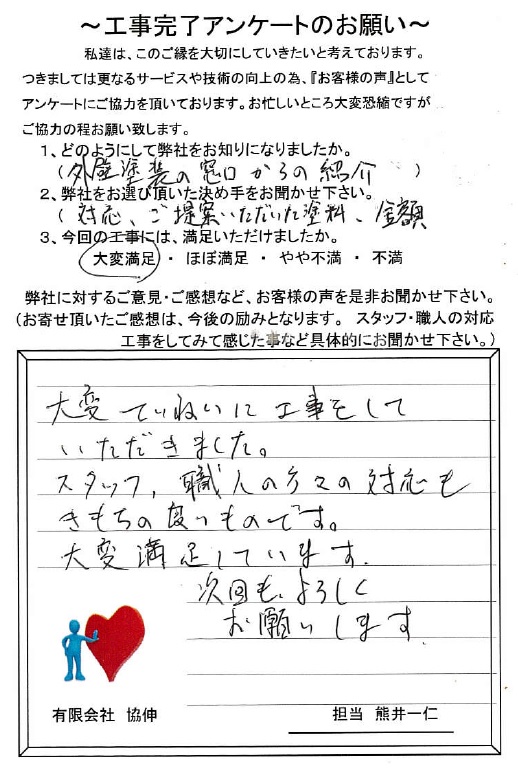 ～工事完了アンケートのお願い～
私達は、このご縁を大切にしていきたいと考えております。
つきましては更なるサービスや技術の向上の為、『お客様の声』として
アンケートにご協力を頂いております。お忙しいところ大変恐縮ですが
ご協力の程お願い致します。
1、どのようにして弊社をお知りになりましたか。
(外壁塗装の窓口からの紹介)
2、弊社をお選び頂いた決め手をお聞かせ下さい。
(対応、ご提案いただいた塗料、金額
3、今回の工事には、満足いただけましたか。
大変満足・ほぼ満足・やや不満・不満
弊社に対するご意見・ご感想など、お客様の声を是非お聞かせ下さい。
(お寄せ頂いたご感想は、今後の励みとなります。 スタッフ・職人の対応
工事をしてみて感じた事など具体的にお聞かせ下さい。)
大変ていねいに工事をして
いただきました。
スタッフ、職人の方々の対応も
きもちの良いものです。
大変満足しています.
次回も、よろしく
お願いします.
有限会社 協伸
担当 熊井一仁